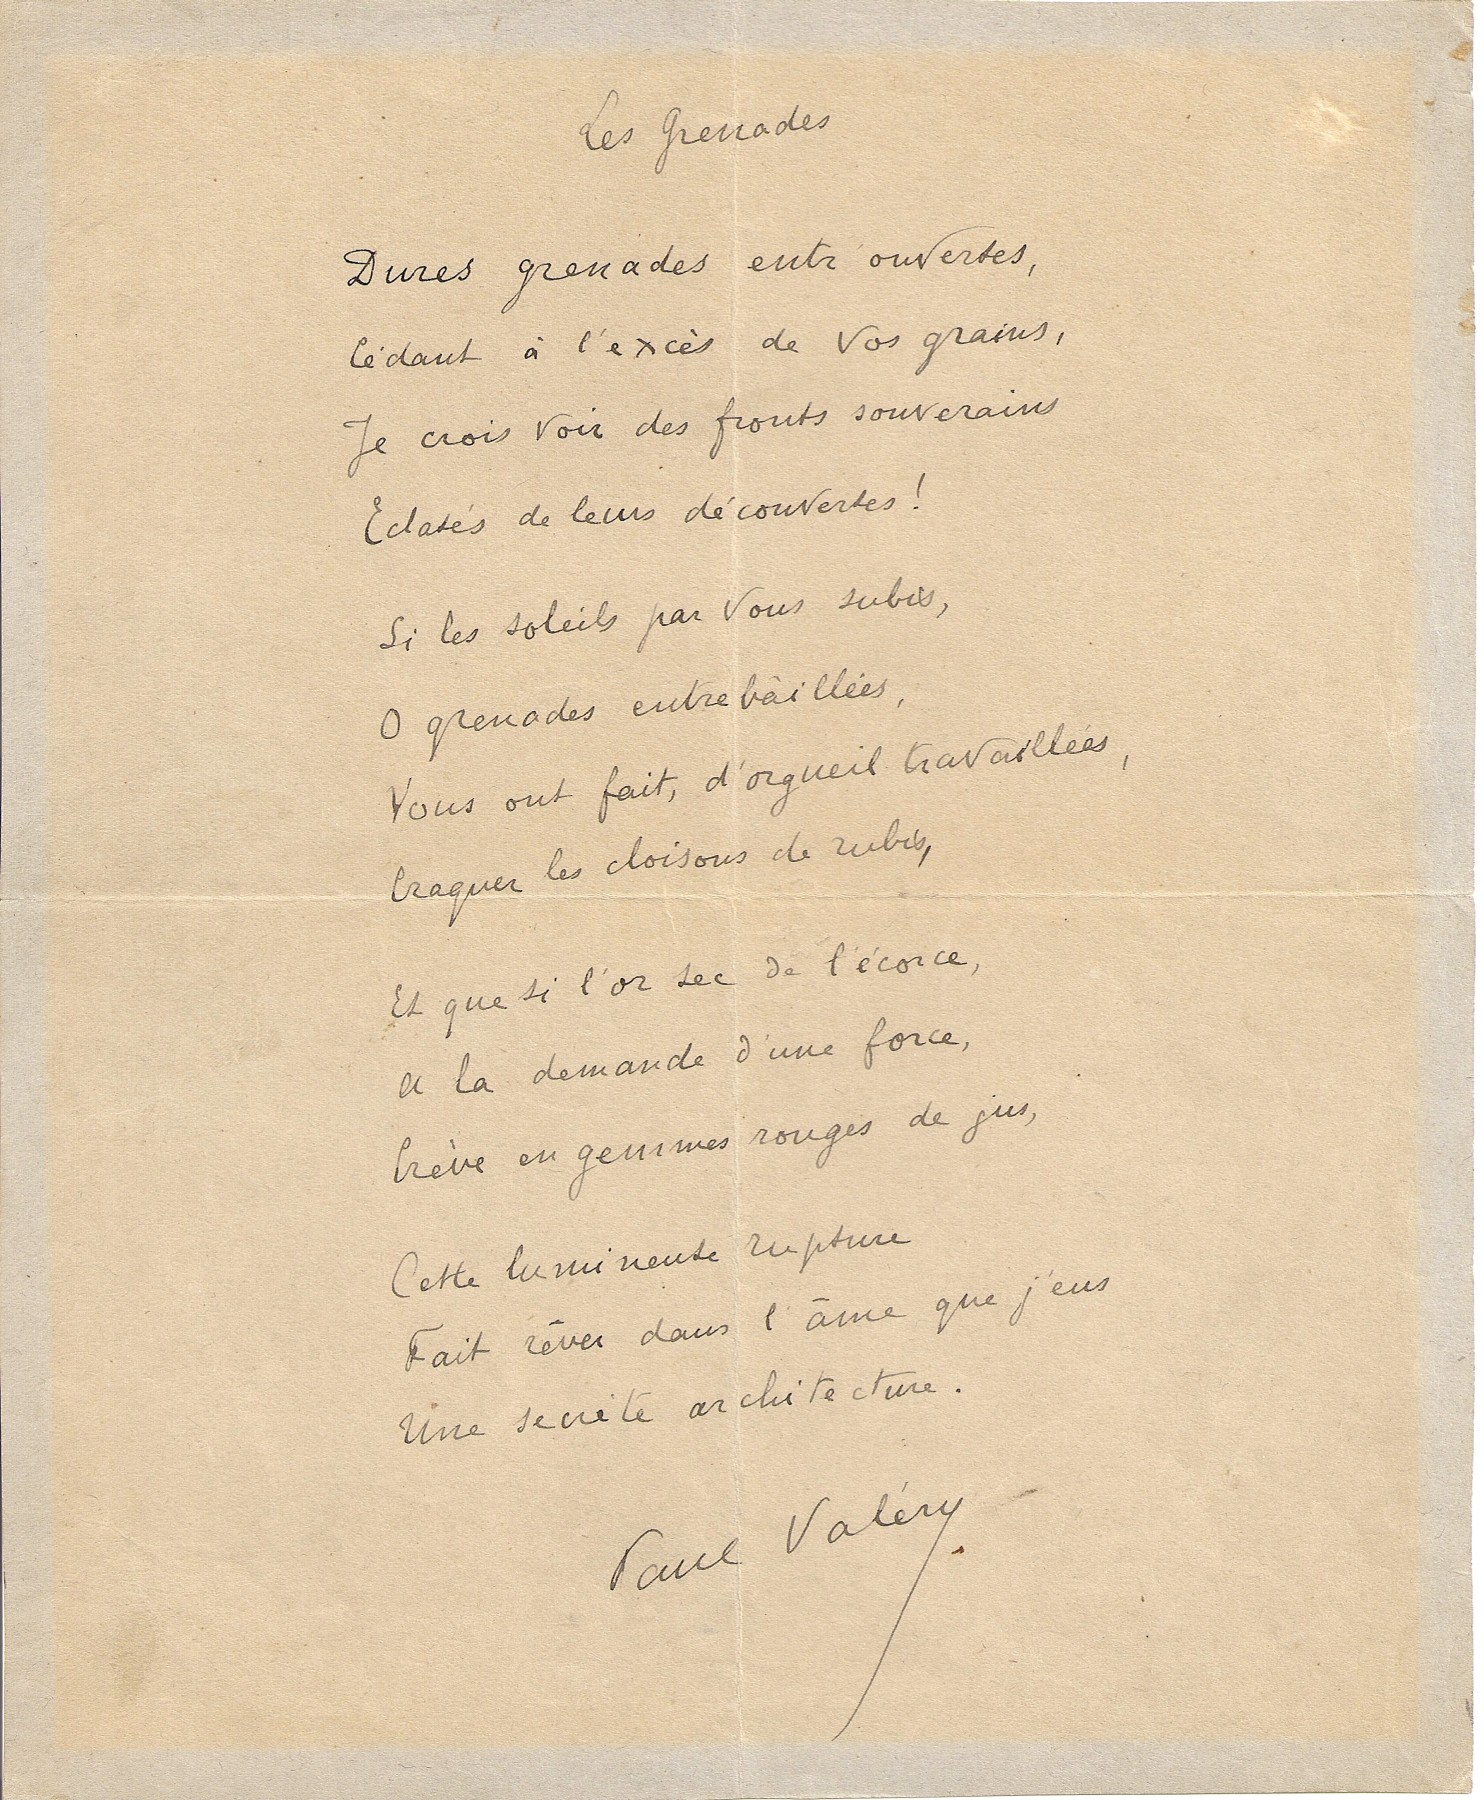 Les Grenades
Dures grenades entr'ouvertes,
Cédant à l'excès de vos grains,
Je crois voir des fronts souverains
Eclatés de leurs découvertes!
Si les soleils par vous subis,
O grenades entrebâillées,
Vous ont fait, d'orgueil travaillées,
Craquer les cloisons de rubis,
Et que si l'or sec de l'écorce,
A la demande d'une force,
Crève en gemmes rouges de jus,
Cette lumineuse rupture
Fait rêver dans l'âme que j'eus
Une secrète architecture.
Paul Valéry